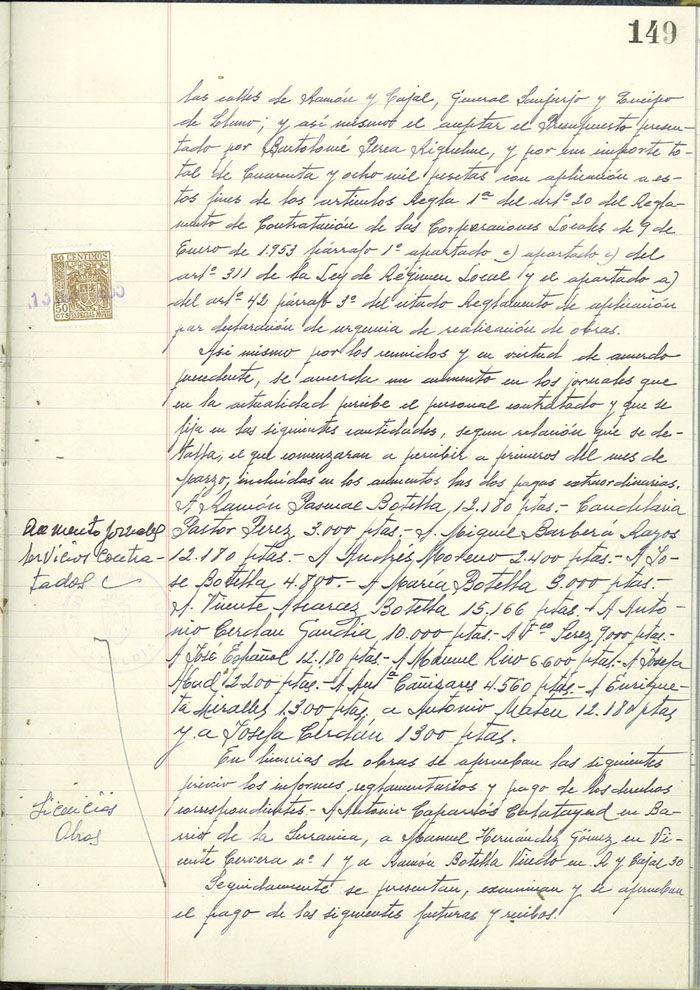 149
las calles de Ramón y Cajal, General Sanjurjo y Queipo
de Llano; y así mismo el aceptar el Presupuesto presen-
tado por Bartolomé Perea Riquelme, y por un importe to-
tal de Cuarenta y ocho mil pesetas con aplicación a es-
tos fines de los artículos Regla 1ª del artº 20 del Regla-
mento de Contratación de las Corporaciones Locales de 9 de
Enero de 1.953 párrafo 1º apartado c) apartado c) del
artº 311 de la Ley de Régimen Local y el apartado a)
del artº 42 párrafo 3º del citado Reglamento de aplicación
por declaración de urgencia de realización de obras.
50 CENTIMOS
50
CTS
ESPECIAL MOVIL
Así mismo por los reunidos y en virtud de acuerdo
precedente, se acuerda un aumento en los jornales que
en la actualidad percibe el personal contratado y que se
fija en las siguientes cantidades, segun relación que se de-
talla, el que comenzaran a percibir a primeros del mes de
Marzo, incluidas en los aumentos las dos pagas extraordinarias.
Aumento Jornales
Servicios Contra-
tados
A Ramón Pascual Botella 12.180 ptas.- Candelaria
Pastor Perez 3.000 ptas.- A Miguel Barberá
12.180 ptas.- A Andrés Moreno 2.400 ptas.- A Jo-
se Botella 4.800.- A Maria Botella 9.000 ptas.-
A Vicente Alvarez Botella 15.166 ptas.- A Anto-
nio Cerdán Gandia 10.000 ptas.- A Fco Perez 9000 ptas.-
A José Español 12.180 ptas.- A Manuel Rico 6600 ptas.- A Josefa
Abad 2200 ptas.- A Antª Cañizares 4.560 ptas.- A Enrique-
ta Miralles 1.300 ptas, a Antonio Mateu 12.180 ptas
y a Josefa Cerdán 1300 ptas.
Licencias
Obras
En licencias de obras se aprueban las siguientes
previo los informes reglamentarios y pago de los derechos
correspondientes.- A Antonio Caparrós Calatayud en Ba-
rrio de la Serranica, a Manuel Hernández Gómez en Vi-
cente Cervera nº 1 y a Ramón Botella Vicedo en R y Cajal 30
Seguidamente se presentan, examinan y se aprueban
el pago de las siguientes facturas y recibos.